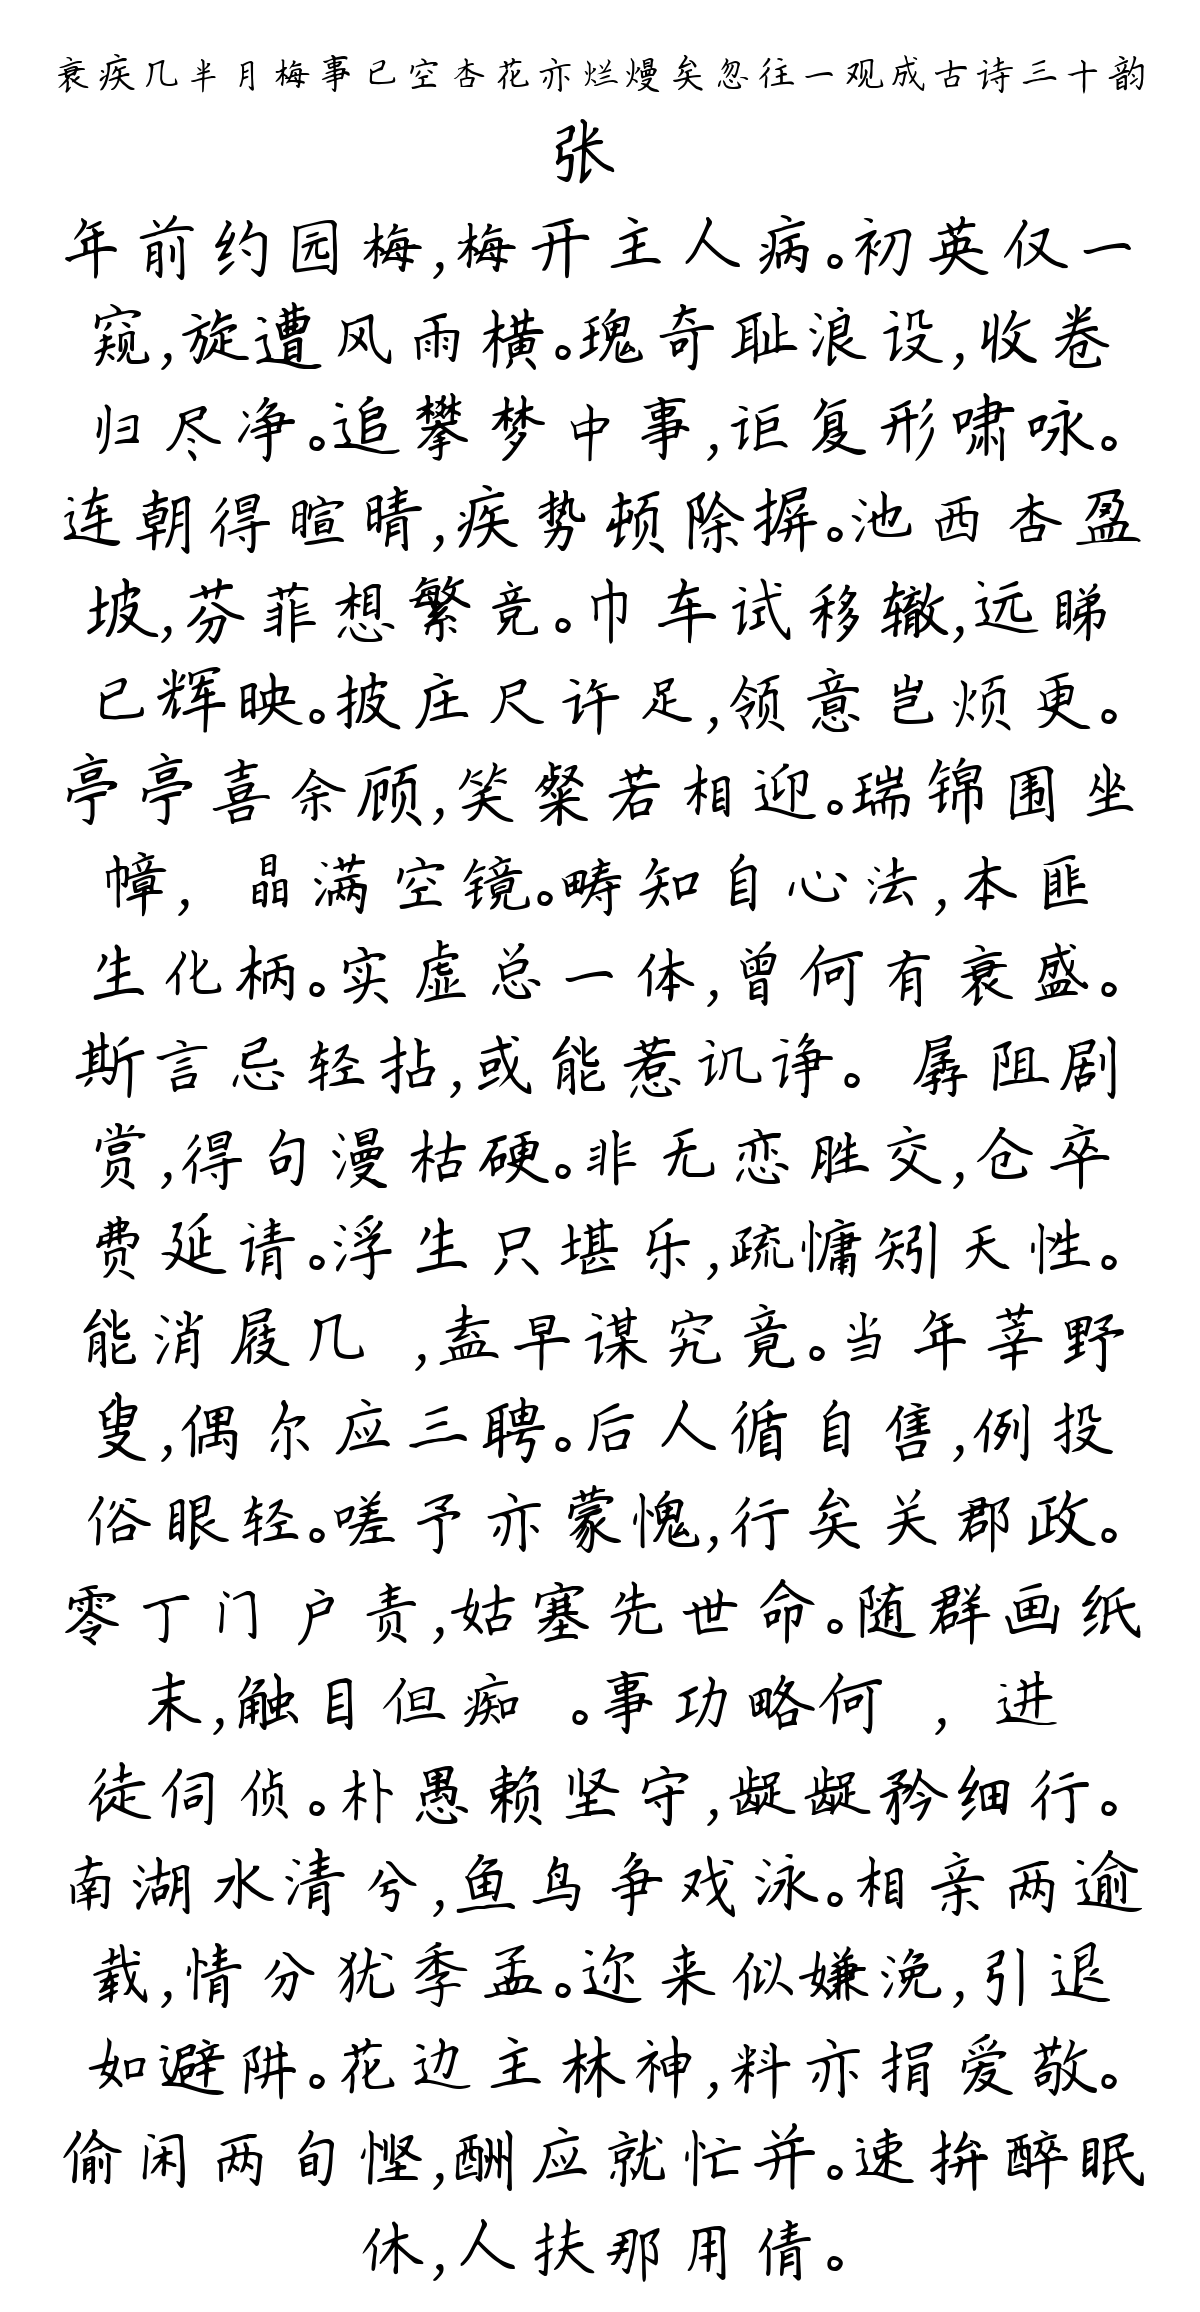 衰疾几半月梅事已空杏花亦烂熳矣忽往一观成古诗三十韵
张
年前约园梅,梅开主人病。初英仅一
窥,旋遭风雨横。瑰奇耻浪设,收卷
归尽净。追攀梦中事,讵复形啸咏。
连朝得暄晴,疾势顿除摒。池西杏盈
坡,芬菲想繁竞。巾车试移辙,远睇
已辉映。披庄尺许足,领意岂烦更。
亭亭喜余顾,笑粲若相迎。瑞锦围坐
幛, 晶满空镜。畴知自心法,本匪
生化柄。实虚总一体,曾何有衰盛。
斯言忌轻拈,或能惹讥诤。 孱阻剧
赏,得句漫枯硬。非无恋胜交,仓卒
费延请。浮生只堪乐,疏慵矧天性。
能消屐几 ,盍早谋究竟。当年莘野
叟,偶尔应三聘。后人循自售,例投
俗眼轻。嗟予亦蒙愧,行矣关郡政。
零丁门户责,姑塞先世命。随群画纸
末,触目但痴 。事功略何 , 进
徒伺侦。朴愚赖坚守,龊龊矜细行。
南湖水清兮,鱼鸟争戏泳。相亲两逾
载,情分犹季孟。迩来似嫌浼,引退
如避阱。花边主林神,料亦捐爱敬。
偷闲两旬悭,酬应就忙并。速拚醉眠
休,人扶那用倩。